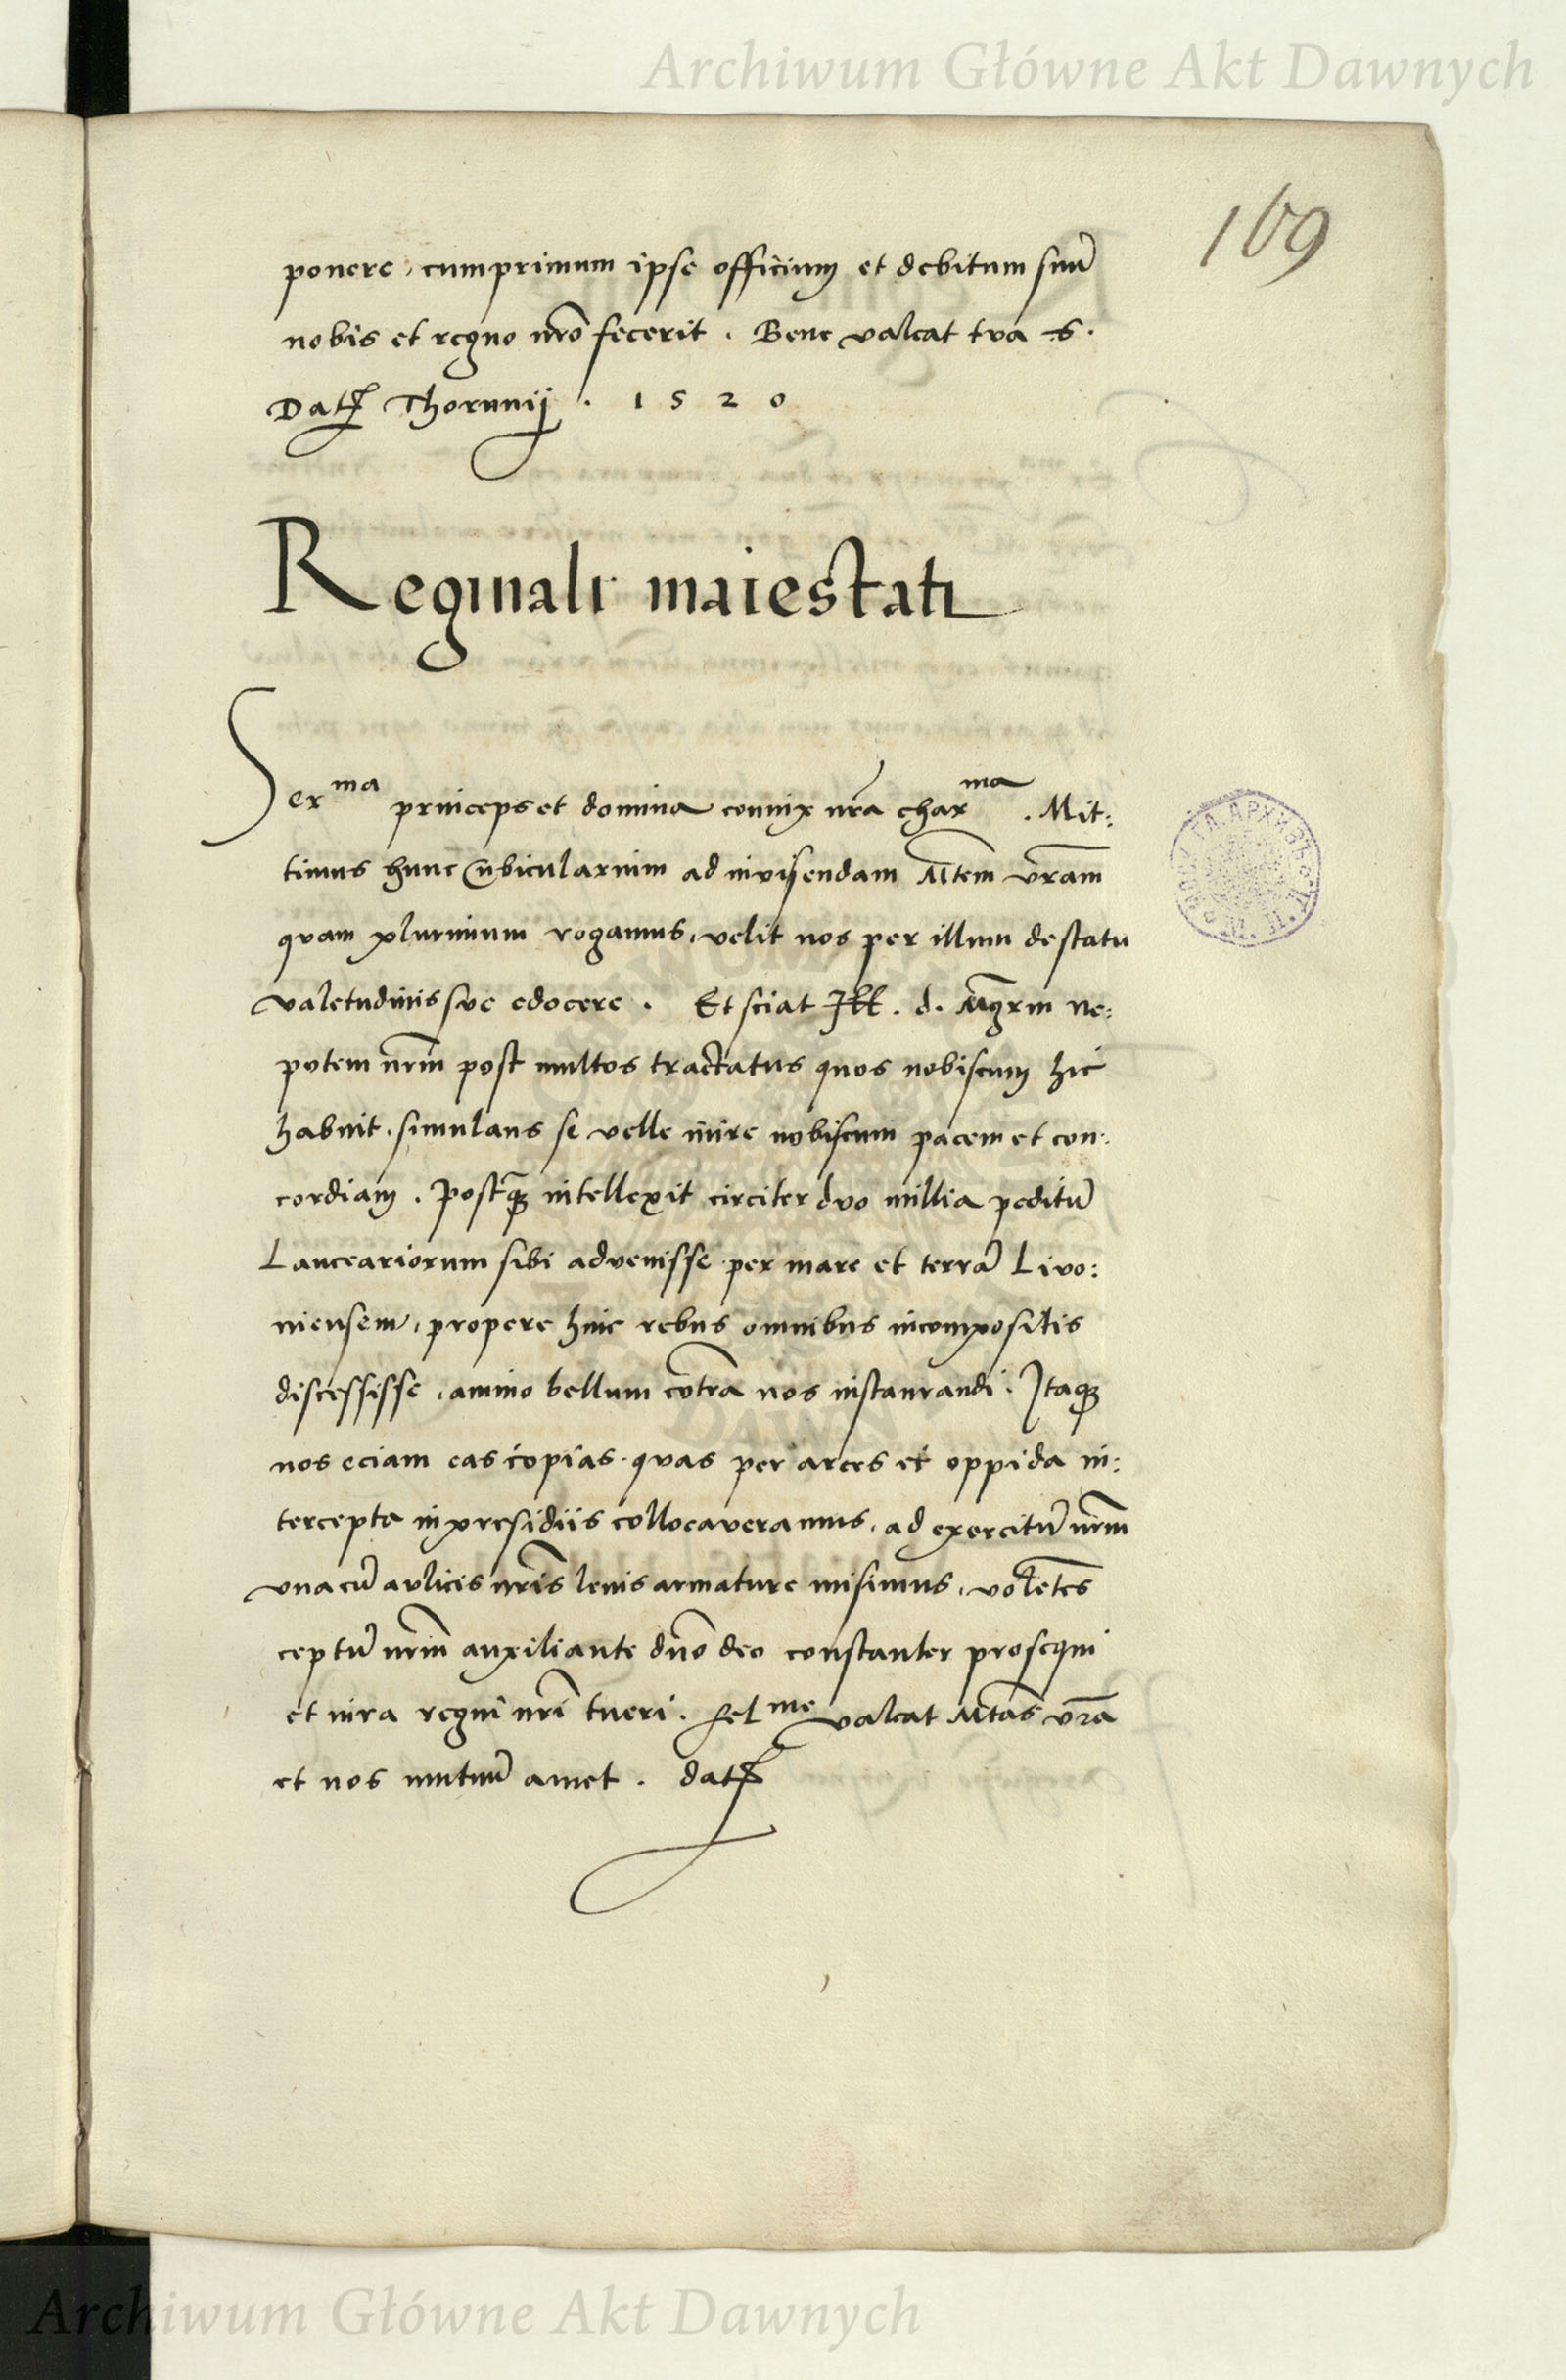 Archiwum Główne Akt Dawnych
169
ponere, cumprimum ipse officium et debitum suū
nobis et regno nr̄o fecerit. Bene valeat tua S.
Dat Thorunij . 1520
Reginali maiestati
Serᵐᵃ princeps et domina coniux nr̄a charᵐᵃ. Mit:
timus hunc cubicularium ad inuisendam Mtem vr̄am
quam plurimum rogamus, velit nos per illum de statu
valetudinis sue edocere. Et sciat Ill. d. Mgrm ne:
potem nr̄m post multos tractatus quos nobiscum hic
habuit, simulans se velle inire nobiscum pacem et con:
cordiam. Postq̄ȝ intellexit circiter duo millia peditū
Lanceariorum sibi advenisse per mare et terrā Livo:
niensem, propere hinc rebus omnibus incompositis
discessisse, animo bellum cōtra nos instaurandi. Itaqȝ
nos eciam eas copias quas per arces et oppida in:
tercepta in presidiis collocaveramus, ad exercitū nr̄m
vna cū aulicis nr̄is levis armature misimus, volētes
ceptū nr̄m auxiliante dn̄o deo constanter prosequi
et iura regni nr̄i tueri. Felᵐᵉ valeat Mtas vr̄a
et nos mutuū amet. dat
Archiwum Główne Akt Dawnych